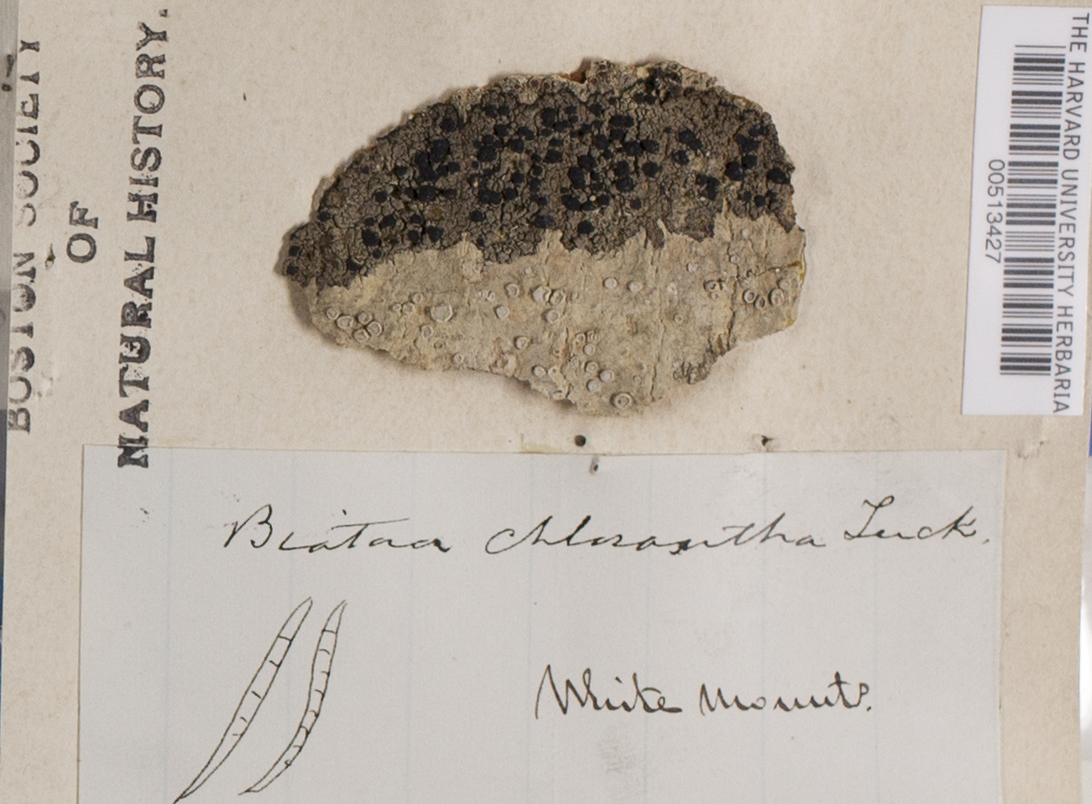 BOSTON SOCIETY
OF
NATURAL HISTORY.
THE HARVARD UNIVERSITY HERBARIA
00513427
Biatora chlorantha Tuck.
White Mounts.